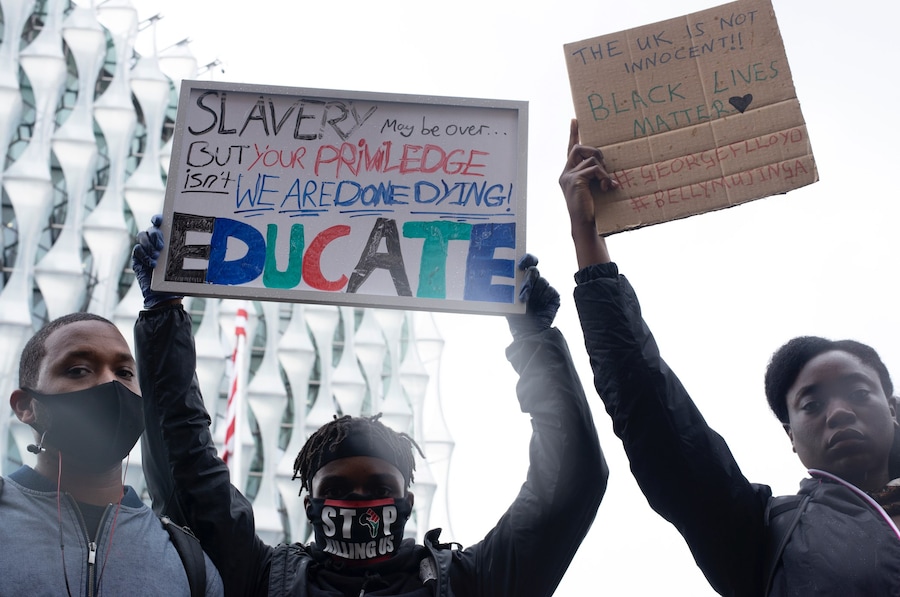 SLAVERY May be over...
BUT YOUR PRIVILEDGE
isn't WE ARE DONE DYING!
EDUCATE
THE UK IS NOT
INNOCENT!!
BLACK LIVES
MATTER
#GEORGEFLLOYD
#BELLYMUJINGA
STOP
KILLING US